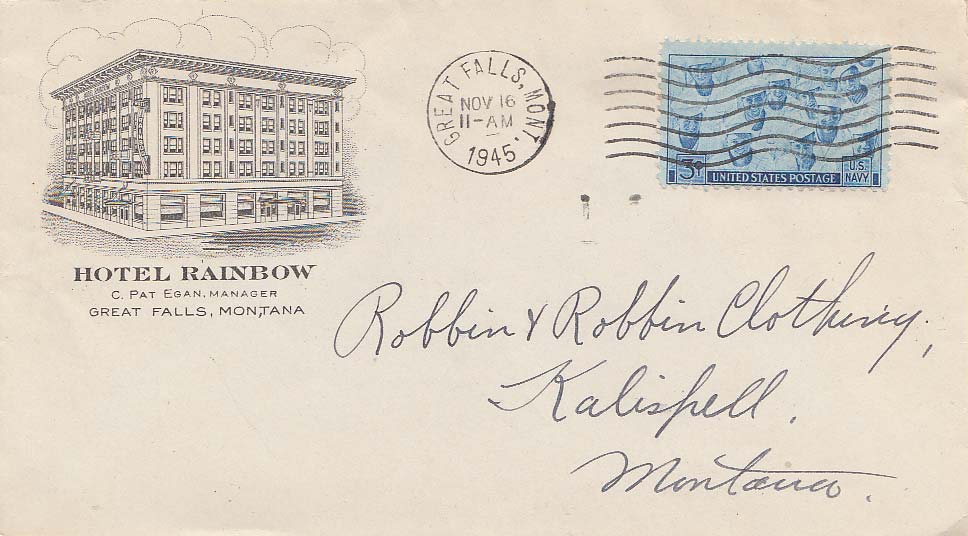 GREAT FALLS, MONT.
NOV 16
11-AM
1945
3¢
UNITED STATES POSTAGE
U.S.
NAVY
HOTEL RAINBOW
C. PAT EGAN, MANAGER
GREAT FALLS, MONTANA
Robbin & Robbin Clothing,
Kalispell,
Montana.